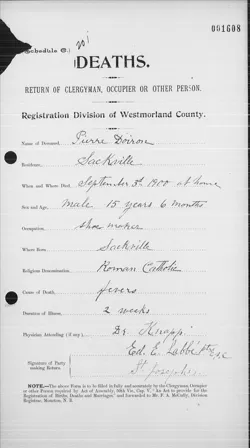 Schedule C.)
201
001608
DEATHS.
RETURN OF CLERGYMAN, OCCUPIER OR OTHER PERSON.
Registration Division of Westmorland County.
Name of Deceased, Pierre Doiron
Residence, Sackville
When and Where Died, September 3d, 1900 at home
Sex and Age, male 15 years 6 months
Occupation, shoe maker
Where Born, Sackville
Religious Denomination, Roman Catholic
Cause of Death, fevers
Duration of Illness, 2 weeks
Physician Attending (if any) Dr Knapp
Signature of Party making Return Ed. E. Labbé ptre
St Joseph's
NOTE.—The above Form is to be filled in fully and accurately by the Clergyman, Occupier or other Person required by Act of Assembly, 50th Vic., Cap. 5, "An Act to provide for the Registration of Births, Deaths and Marriages," and forwarded to Mr. F. A. McCully, Division Registrar, Moncton, N. B.